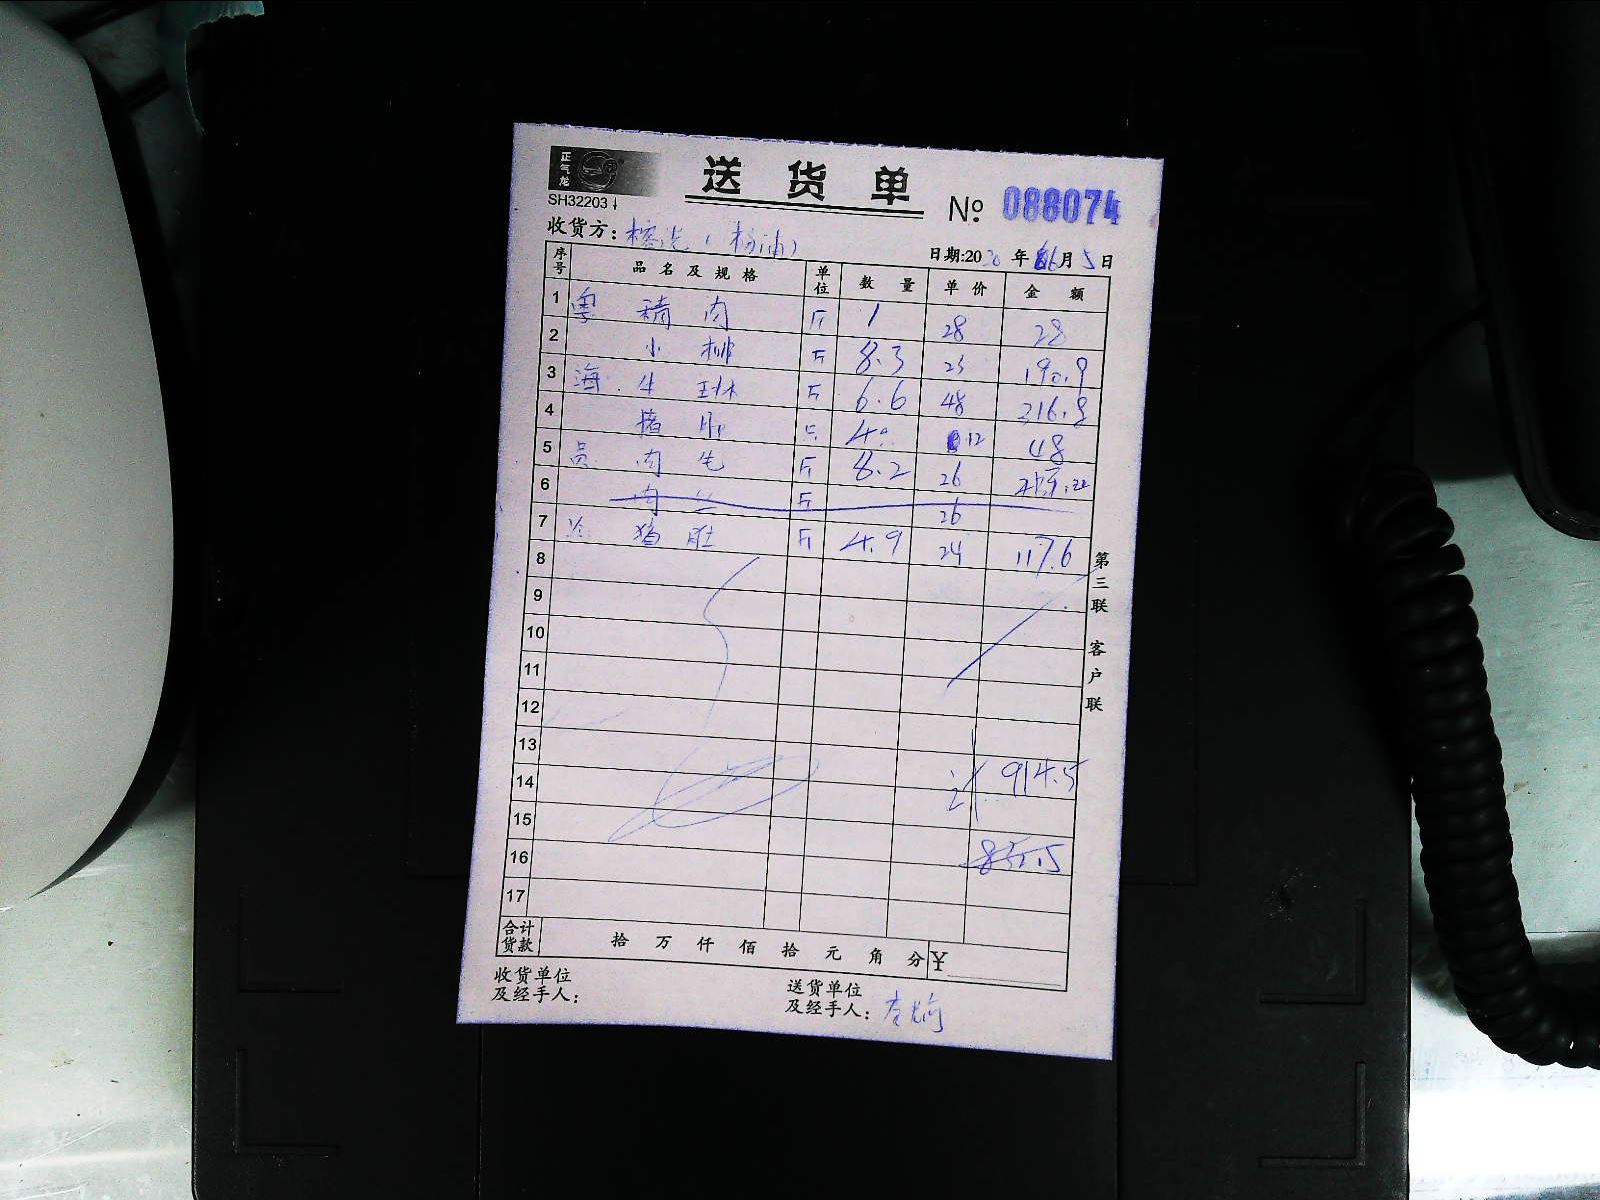 正气龙
送货单
SH32203
№ 088074
收货方：
日期:2020年6月5日
序号 品名及规格 单位 数量 单价 金额
1 粤 精肉 斤 1 28 28
2 小排 斤 8.3 23 190.9
3 海. 牛 斤 6.6 48 316.8
4 猪 只 4 12 48
5 员 肉 斤 8.2 26
6 肉 斤 26
7 冷 猪肚 斤 4.9 24 117.6
8
9
10
11
12
13
14 914.5
15
16
17
合计货款 拾 万 仟 佰 拾 元 角 分 ¥
收货单位
及经手人：
送货单位
及经手人：
第三联 客户联